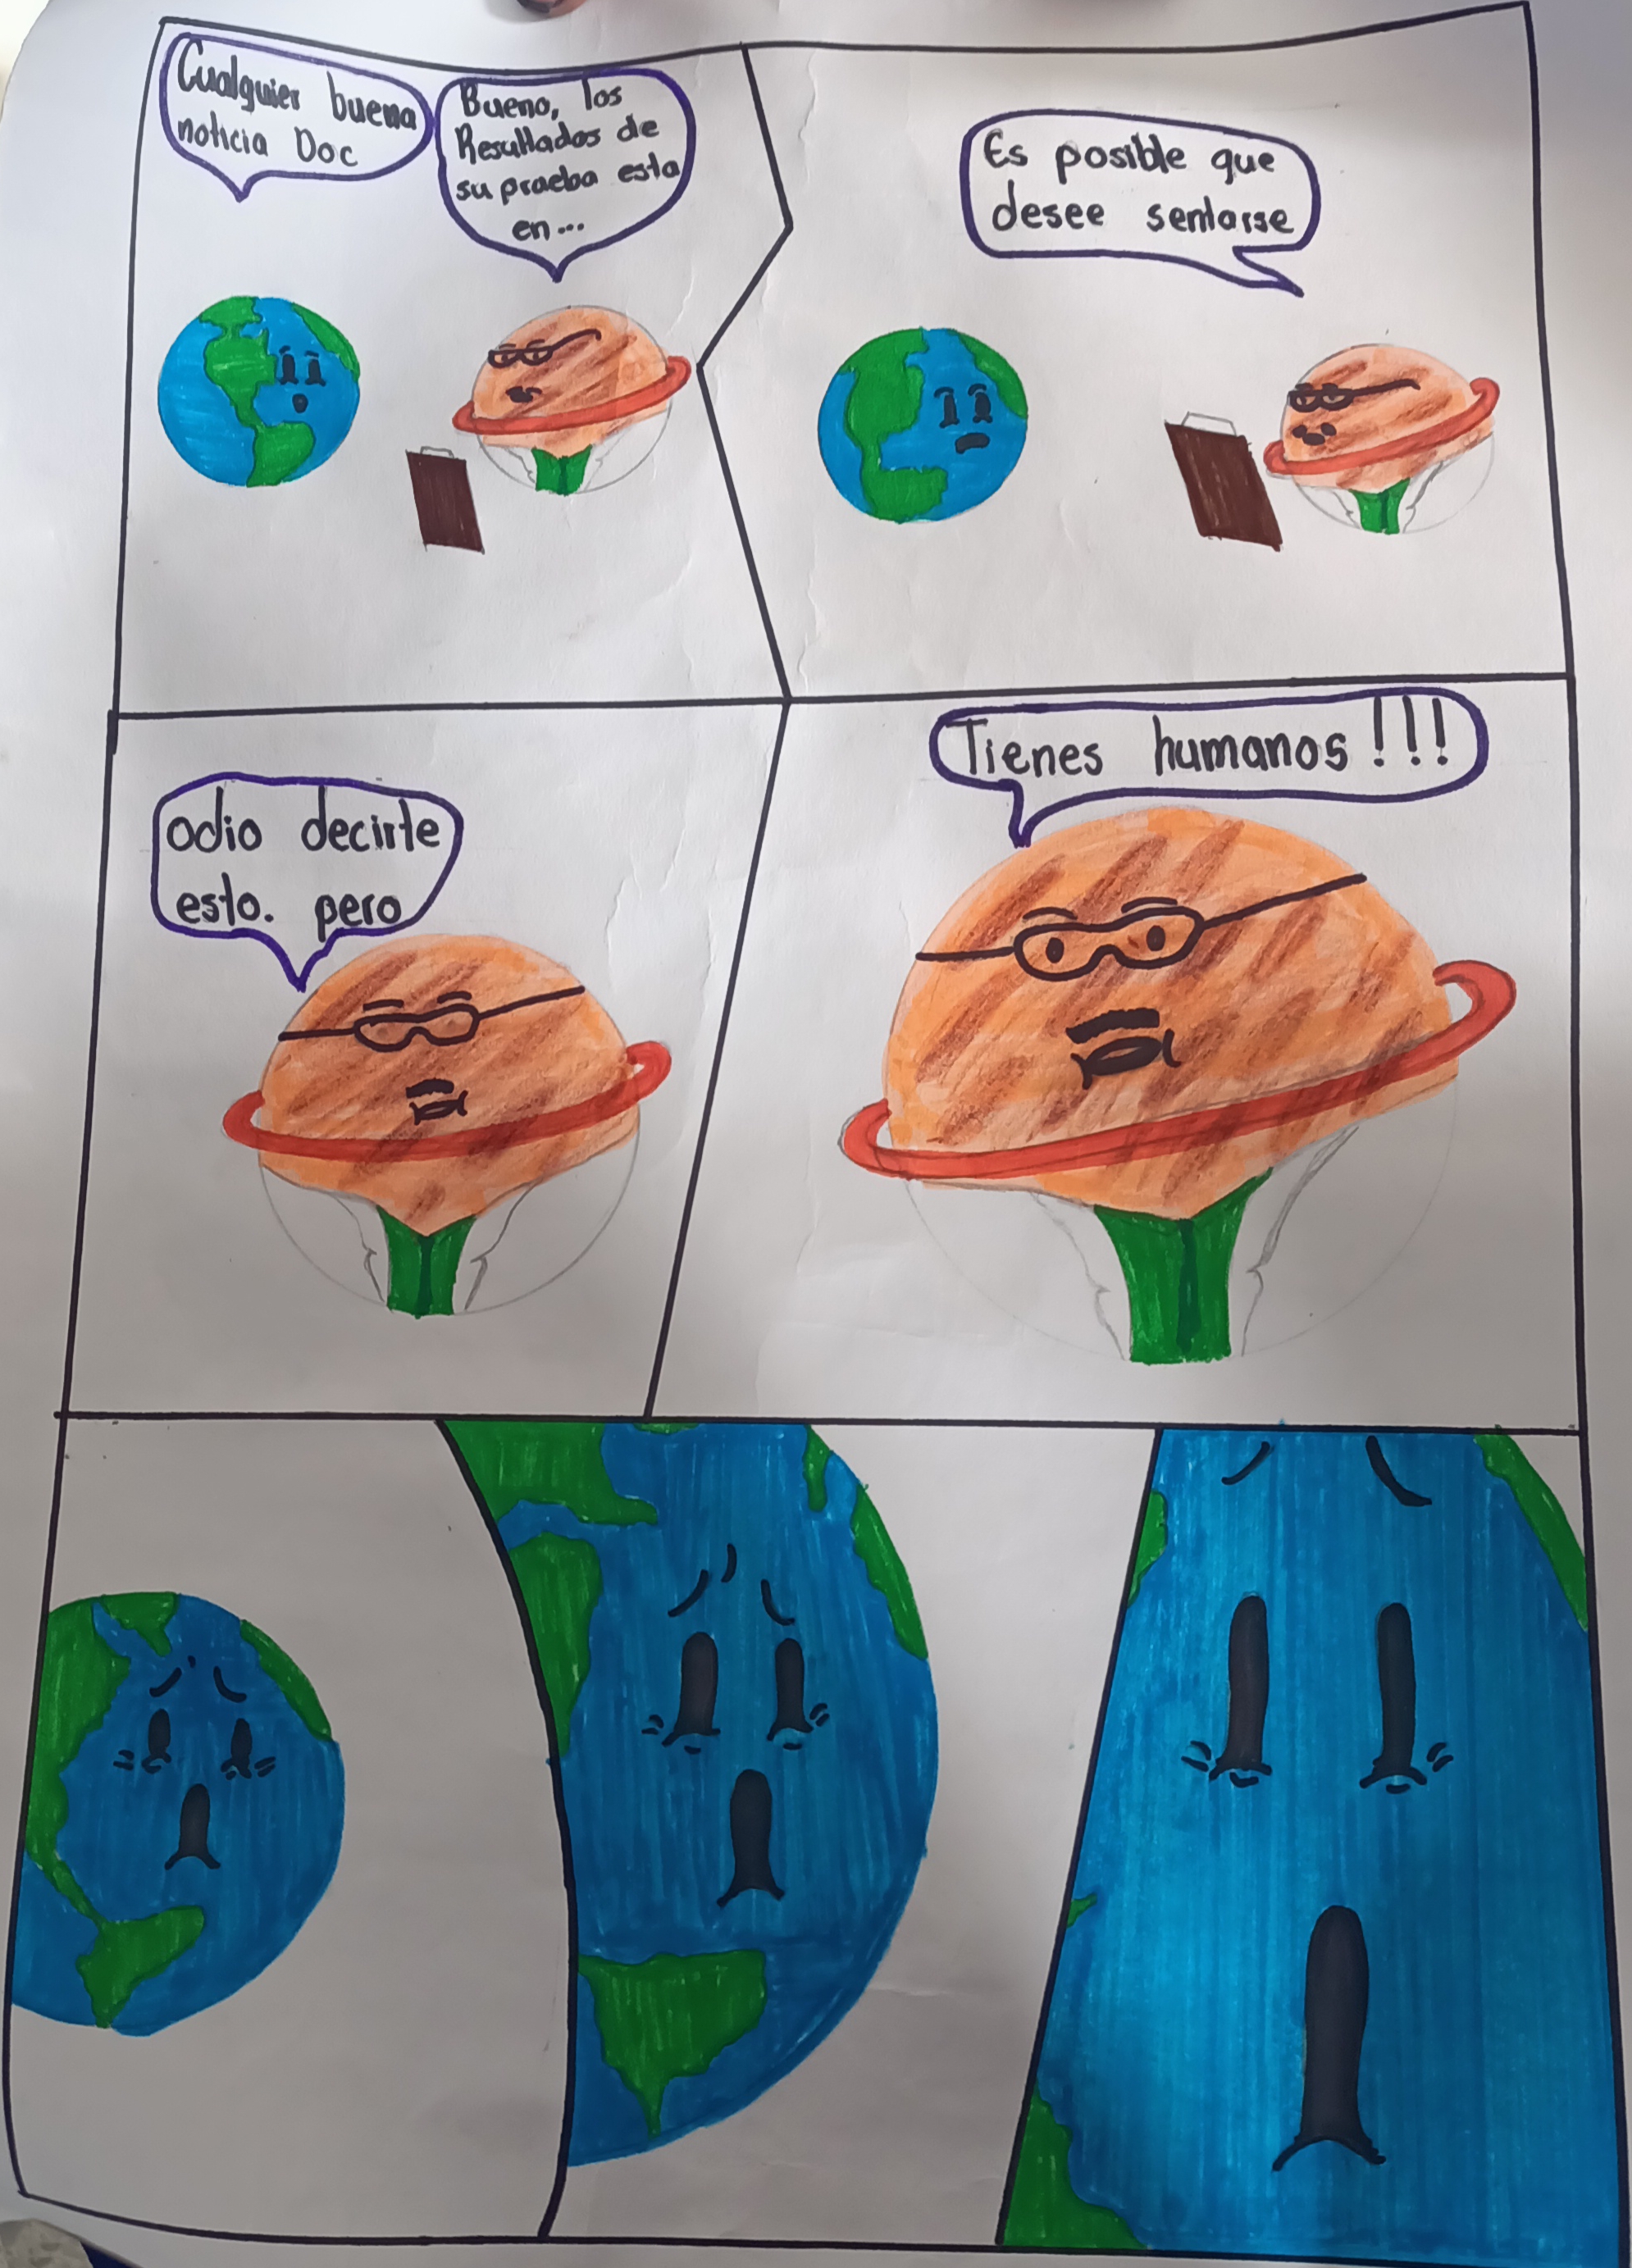 Cualquier buena
noticia Doc
Bueno, los
Resultados de
su prueba esta
en...
Es posible que
desee sentarse
odio decirte
esto. pero
Tienes humanos!!!